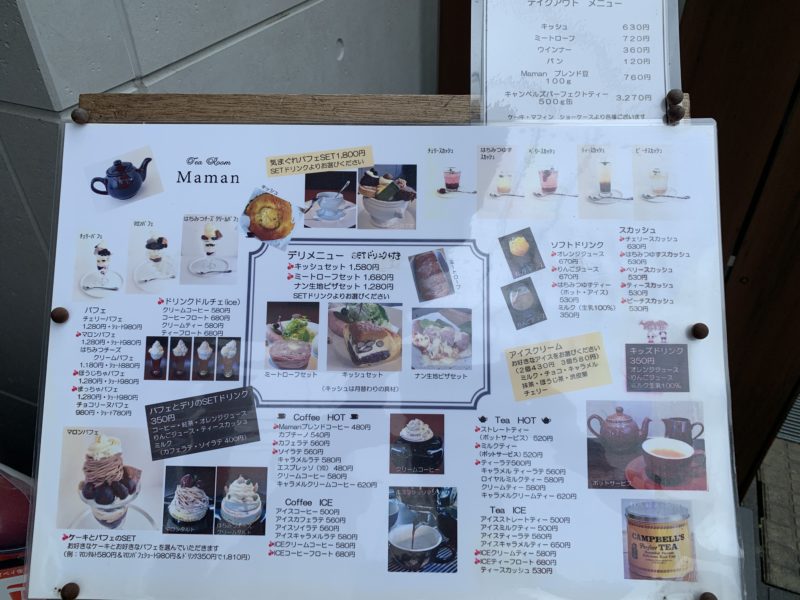 テイクアウト メニュー
キッシュ 630円
ミートローフ 720円
ウインナー 360円
パン 120円
Maman ブレンド豆 100g 760円
キャンベルズパーフェクトティー 500g缶 3,270円
ケーキ・マフィン ショーケースより各種ございます
Tea Room
Maman
気まぐれパフェSET1,800円
SETドリンクよりお選びください
チェリースカッシュ
はちみつゆずスカッシュ
ベリースカッシュ
ティースカッシュ
ピーチスカッシュ
キッシュ
チェリーパフェ
マロンパフェ
はちみつチーズ クリームパフェ
デリメニュー SETドリンク付き
キッシュセット 1,580円
ミートローフセット 1,680円
ナン生地ピザセット 1,280円
SETドリンクよりお選びください
ミートローフ
ミートローフセット
キッシュセット
ナン生地ピザセット
(キッシュは月替わりの具材)
ソフトドリンク
オレンジジュース
670円
りんごジュース
670円
はちみつゆずティー
(ホット・アイス)
530円
ミルク(生乳100%)
350円
スカッシュ
チェリースカッシュ
630円
はちみつゆずスカッシュ
530円
ベリースカッシュ
530円
ティースカッシュ
530円
ピーチスカッシュ
530円
パフェ
チェリーパフェ
1,280円・ショート980円
マロンパフェ
1,280円・ショート980円
はちみつチーズ
クリームパフェ
1,180円・ショート880円
ほうじちゃパフェ
1,280円・ショート980円
まっちゃパフェ
1,280円・ショート980円
チョコリーヌパフェ
980円・ショート780円
ドリンクドルチェ(ice)
クリームコーヒー 580円
コーヒーフロート 680円
クリームティー 580円
ティーフロート 680円
パフェとデリのSETドリンク
350円
コーヒー・紅茶・オレンジジュース
りんごジュース・ティースカッシュ
ミルク
(カフェラテ・ソイラテ 400円)
アイスクリーム
お好きなアイスをお選びください
(2個430円 3個580円)
ミルク・チョコ・キャラメル
抹茶・ほうじ茶・炭炭蜜
チェリー
キッズドリンク
350円
オレンジジュース
りんごジュース
ミルク生乳100%
マロンパフェ
はちみつチーズ
クリームタルト
ケーキとパフェのSET
お好きなケーキとお好きなパフェを選んでいただきます
(例:マロンタルト580円&マロンパフェショート980円&ドリンク350円で1,810円)
Coffee HOT
Mamanブレンドコーヒー 480円
カプチーノ 540円
カフェラテ 560円
ソイラテ 560円
キャラメルラテ 580円
エスプレッソ(ソロ) 480円
クリームコーヒー 580円
キャラメルクリームコーヒー 620円
Coffee ICE
アイスコーヒー 500円
アイスカフェラテ 560円
アイスソイラテ 560円
アイスキャラメルラテ 580円
ICEクリームコーヒー 580円
ICEコーヒーフロート 680円
クリームコーヒー
Tea HOT
ストレートティー
(ポットサービス) 520円
ミルクティー
(ポットサービス) 520円
ティーラテ560円
キャラメル ティーラテ 560円
ロイヤルミルクティー 580円
クリームティー 580円
キャラメルクリームティー 620円
Tea ICE
アイスストレートティー 500円
アイスミルクティー 500円
アイスティーラテ 560円
アイスキャラメルティー 650円
ICEクリームティー 580円
ICEティーフロート 680円
ティースカッシュ 530円
ポットサービス
CAMPBELL'S
Perfect TEA